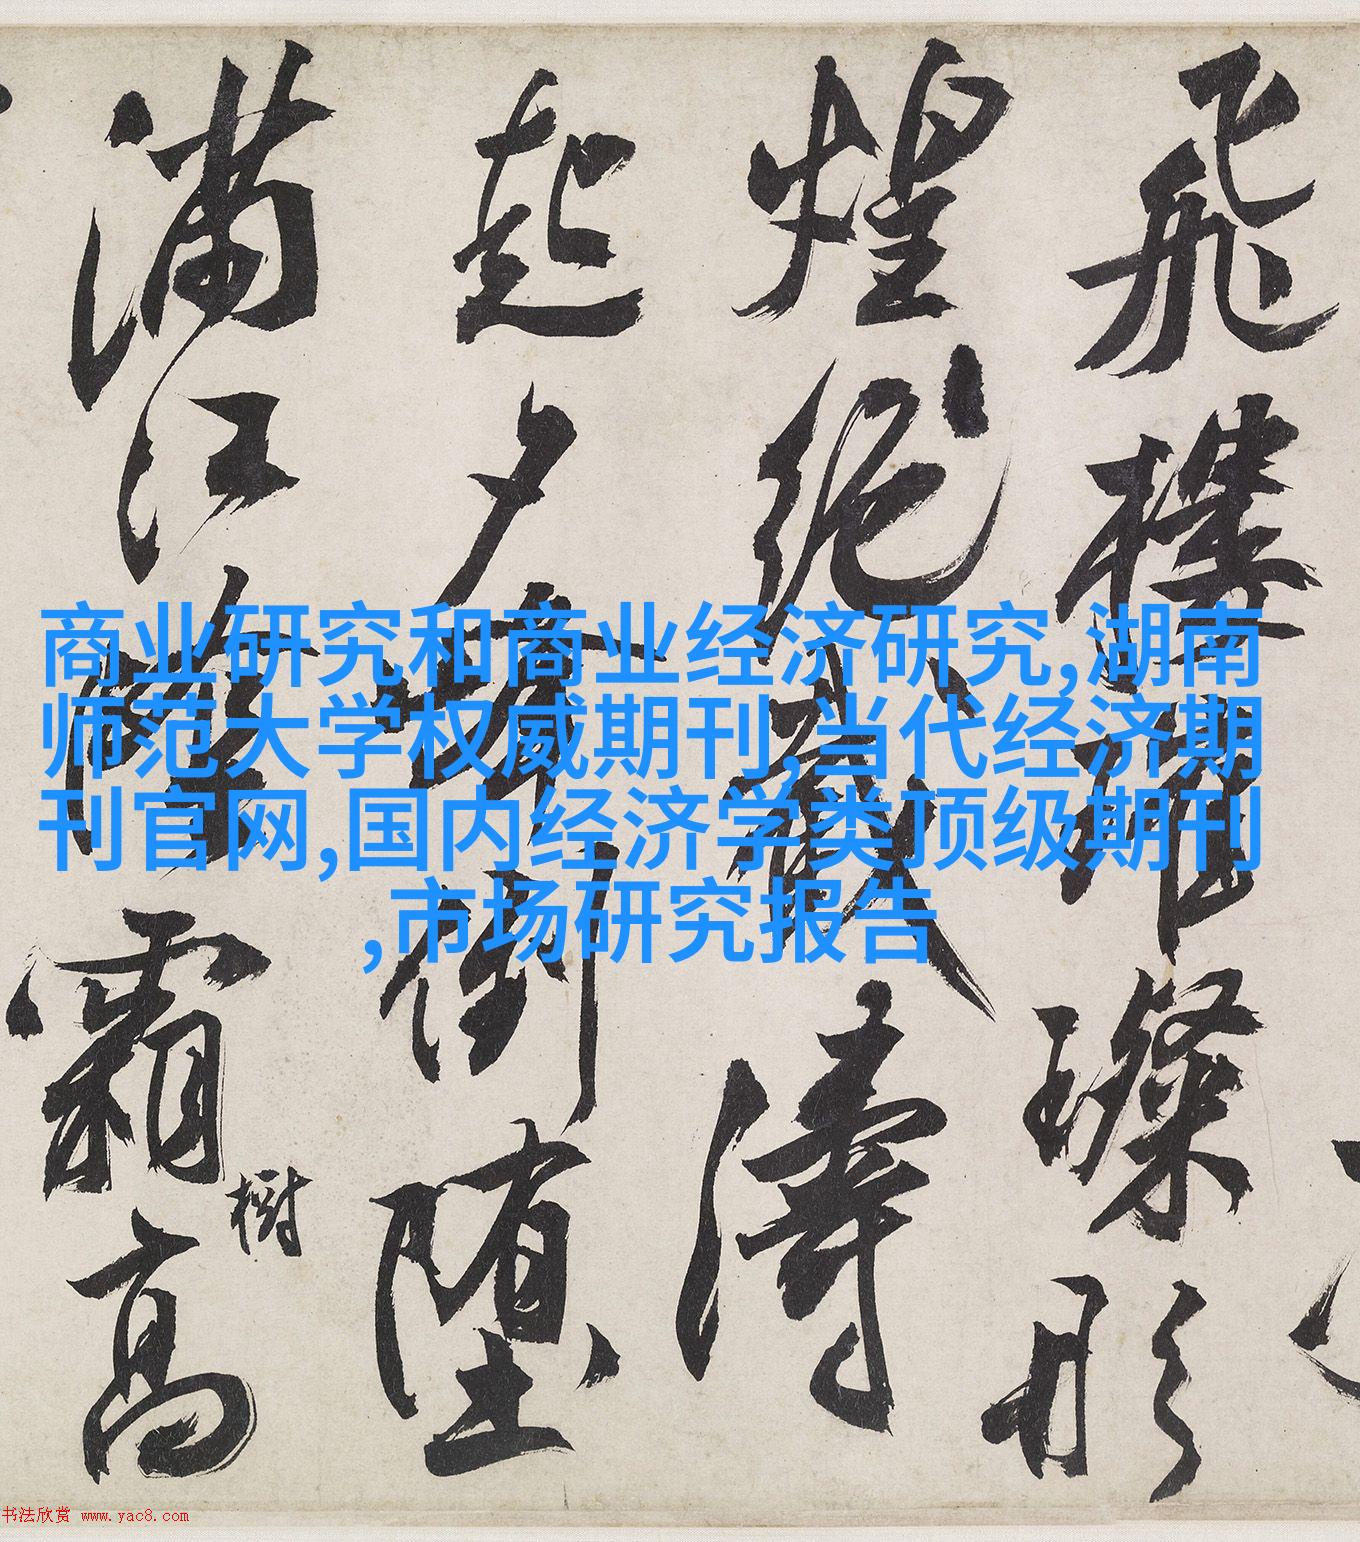 飛樓璀璨形
煌絕濤
起夕倒堕
滿江霜高
樹
商业研究和商业经济研究,湖南
师范大学权威期刊,当代经济期
刊官网,国内经济学类顶级期刊
,市场研究报告
书法欣赏 www.yac8.com